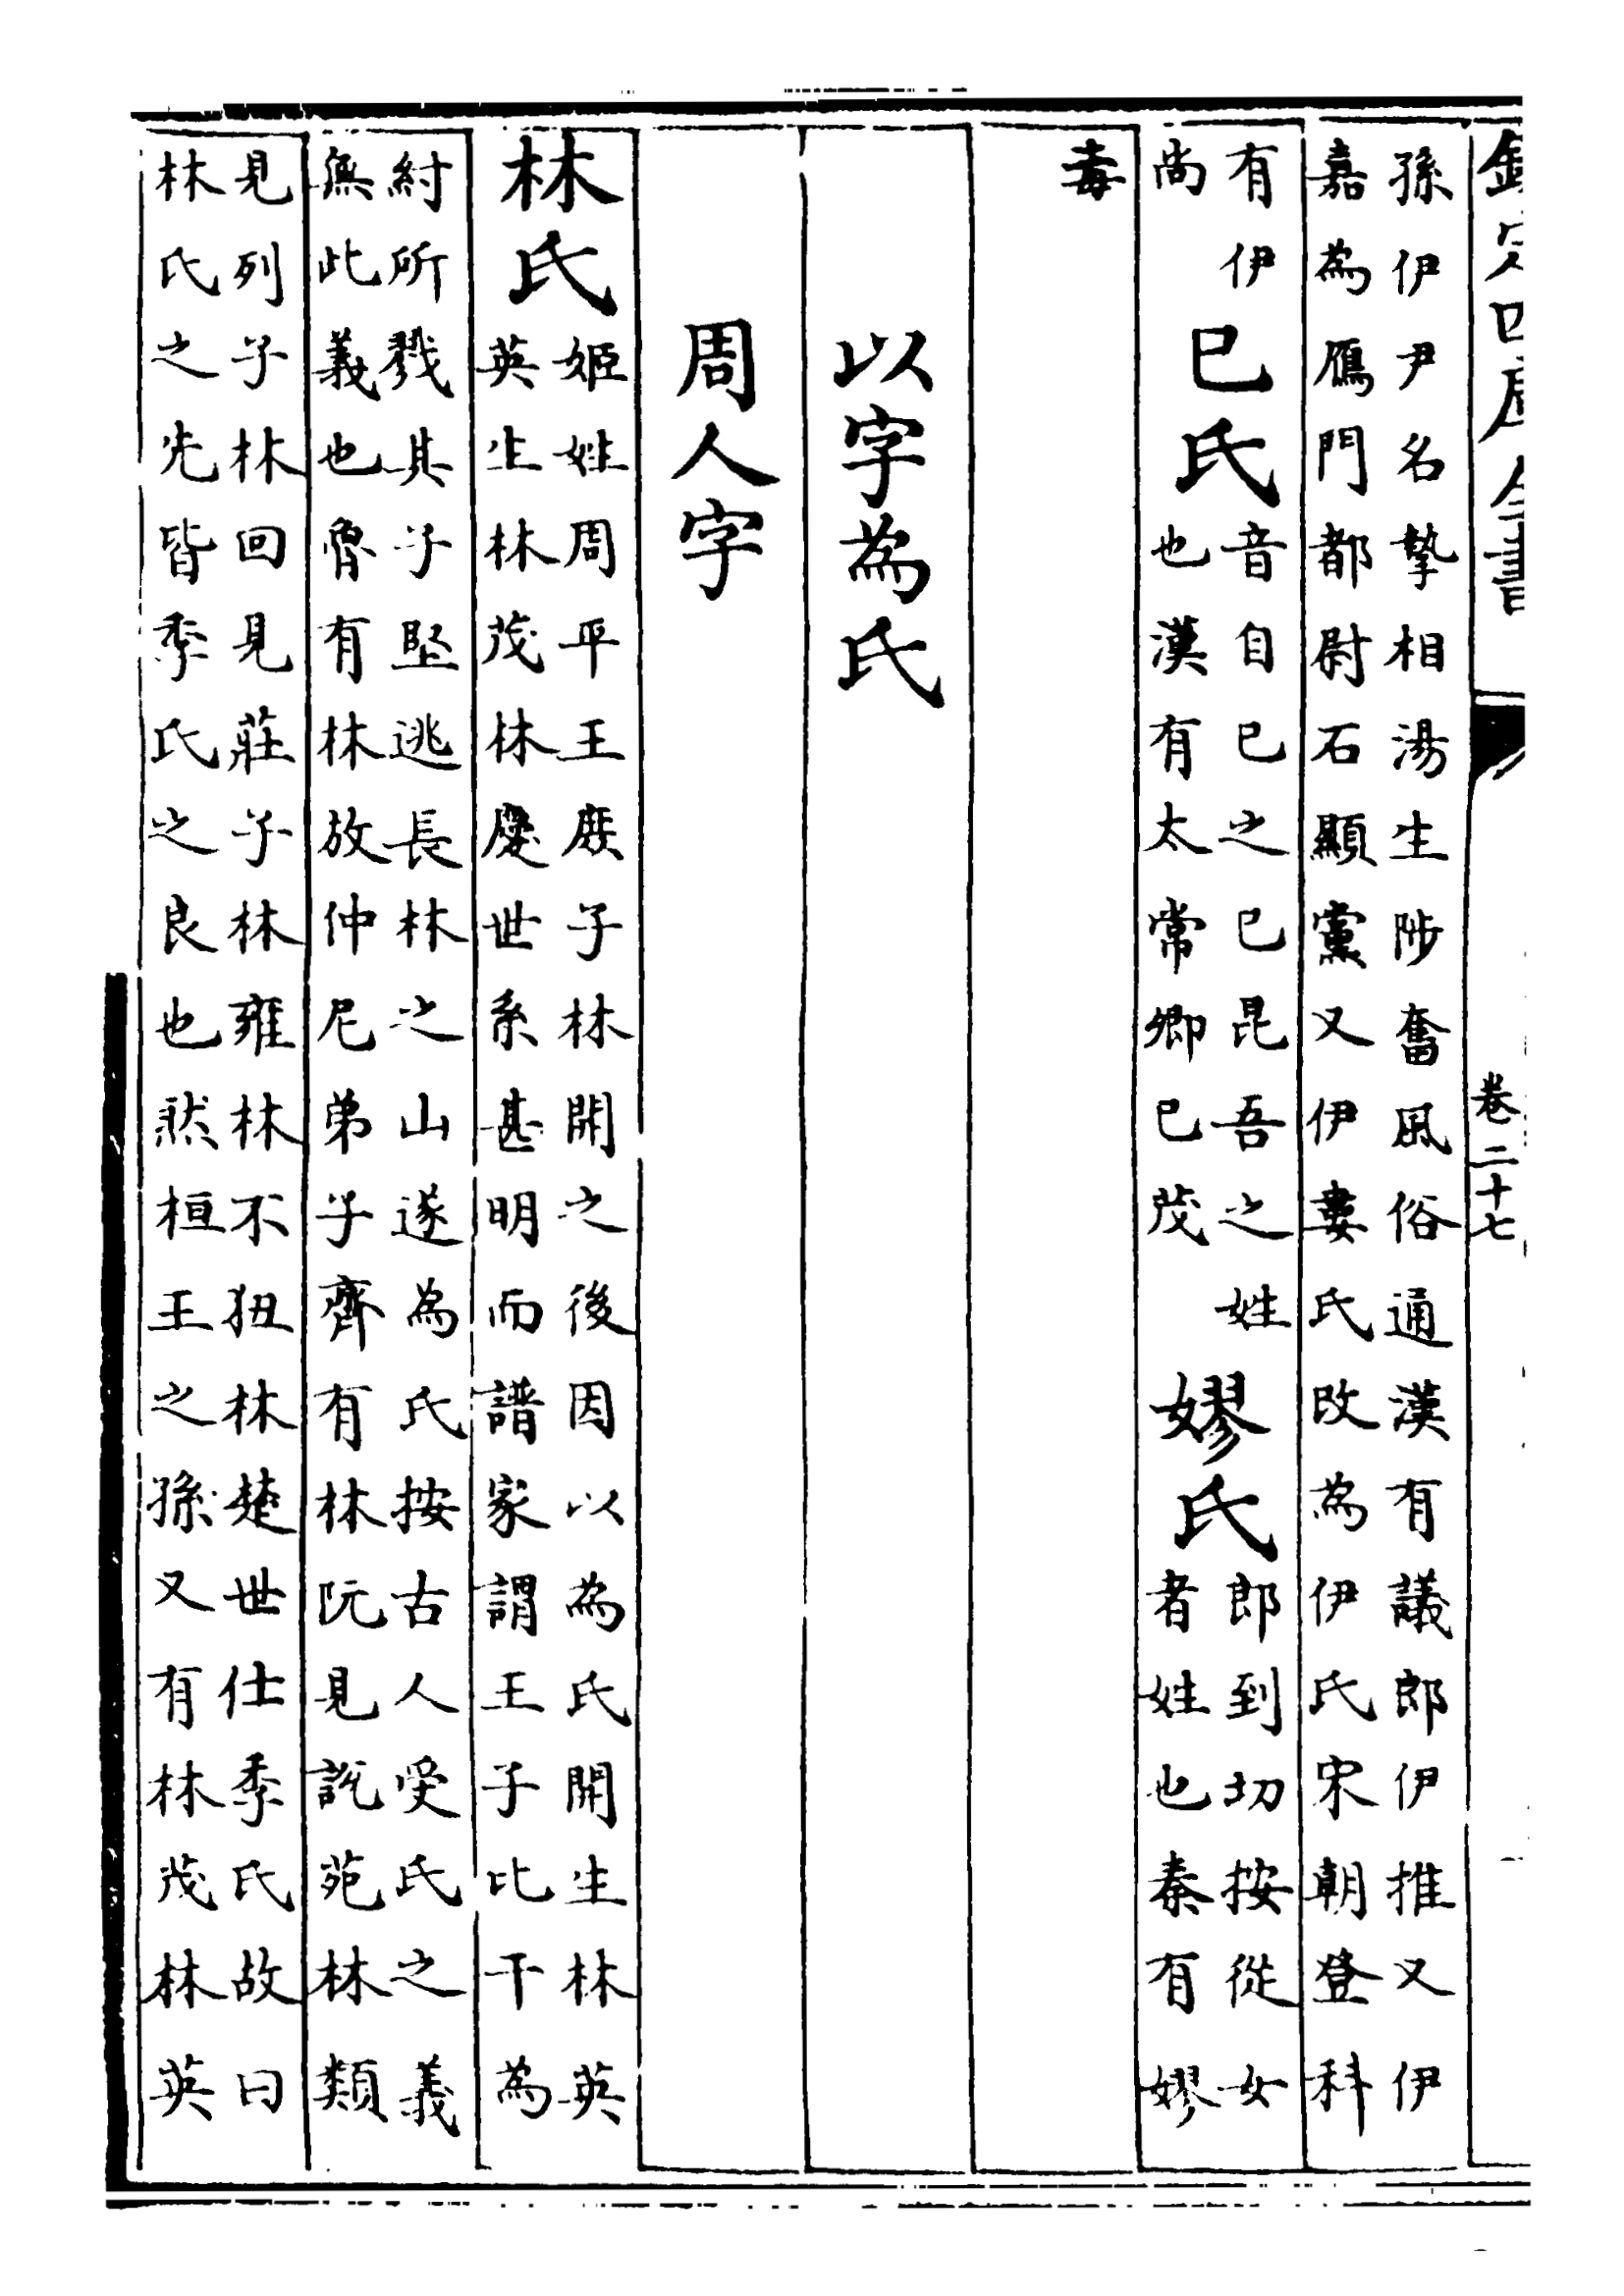 欽定四庫全書
卷二十七
孫伊尹名摯相湯生陟奮風俗通漢有議郎伊推又伊
嘉為鴈門都尉石顯黨又伊婁氏改為伊氏宋朝登科
有伊
尚
巳氏
音自巳之巳巳昆吾之姓
也漢有太常卿巳茂
嫪氏
郎到切按從女
者姓也秦有嫪
毒
以字為氏
周人字
林氏
姬姓周平王庶子林開之後因以為氏開生林英
英生林茂林慶世系甚明而譜家謂王子比干為
紂所戮其子堅逃長林之山遂為氏按古人受氏之義
無此義也魯有林放仲尼弟子齊有林阮見説苑林類
見列子林回見莊子林雍林不狃林楚世仕季氏故曰
林氏之先皆季氏之良也然桓王之孫又有林茂林英